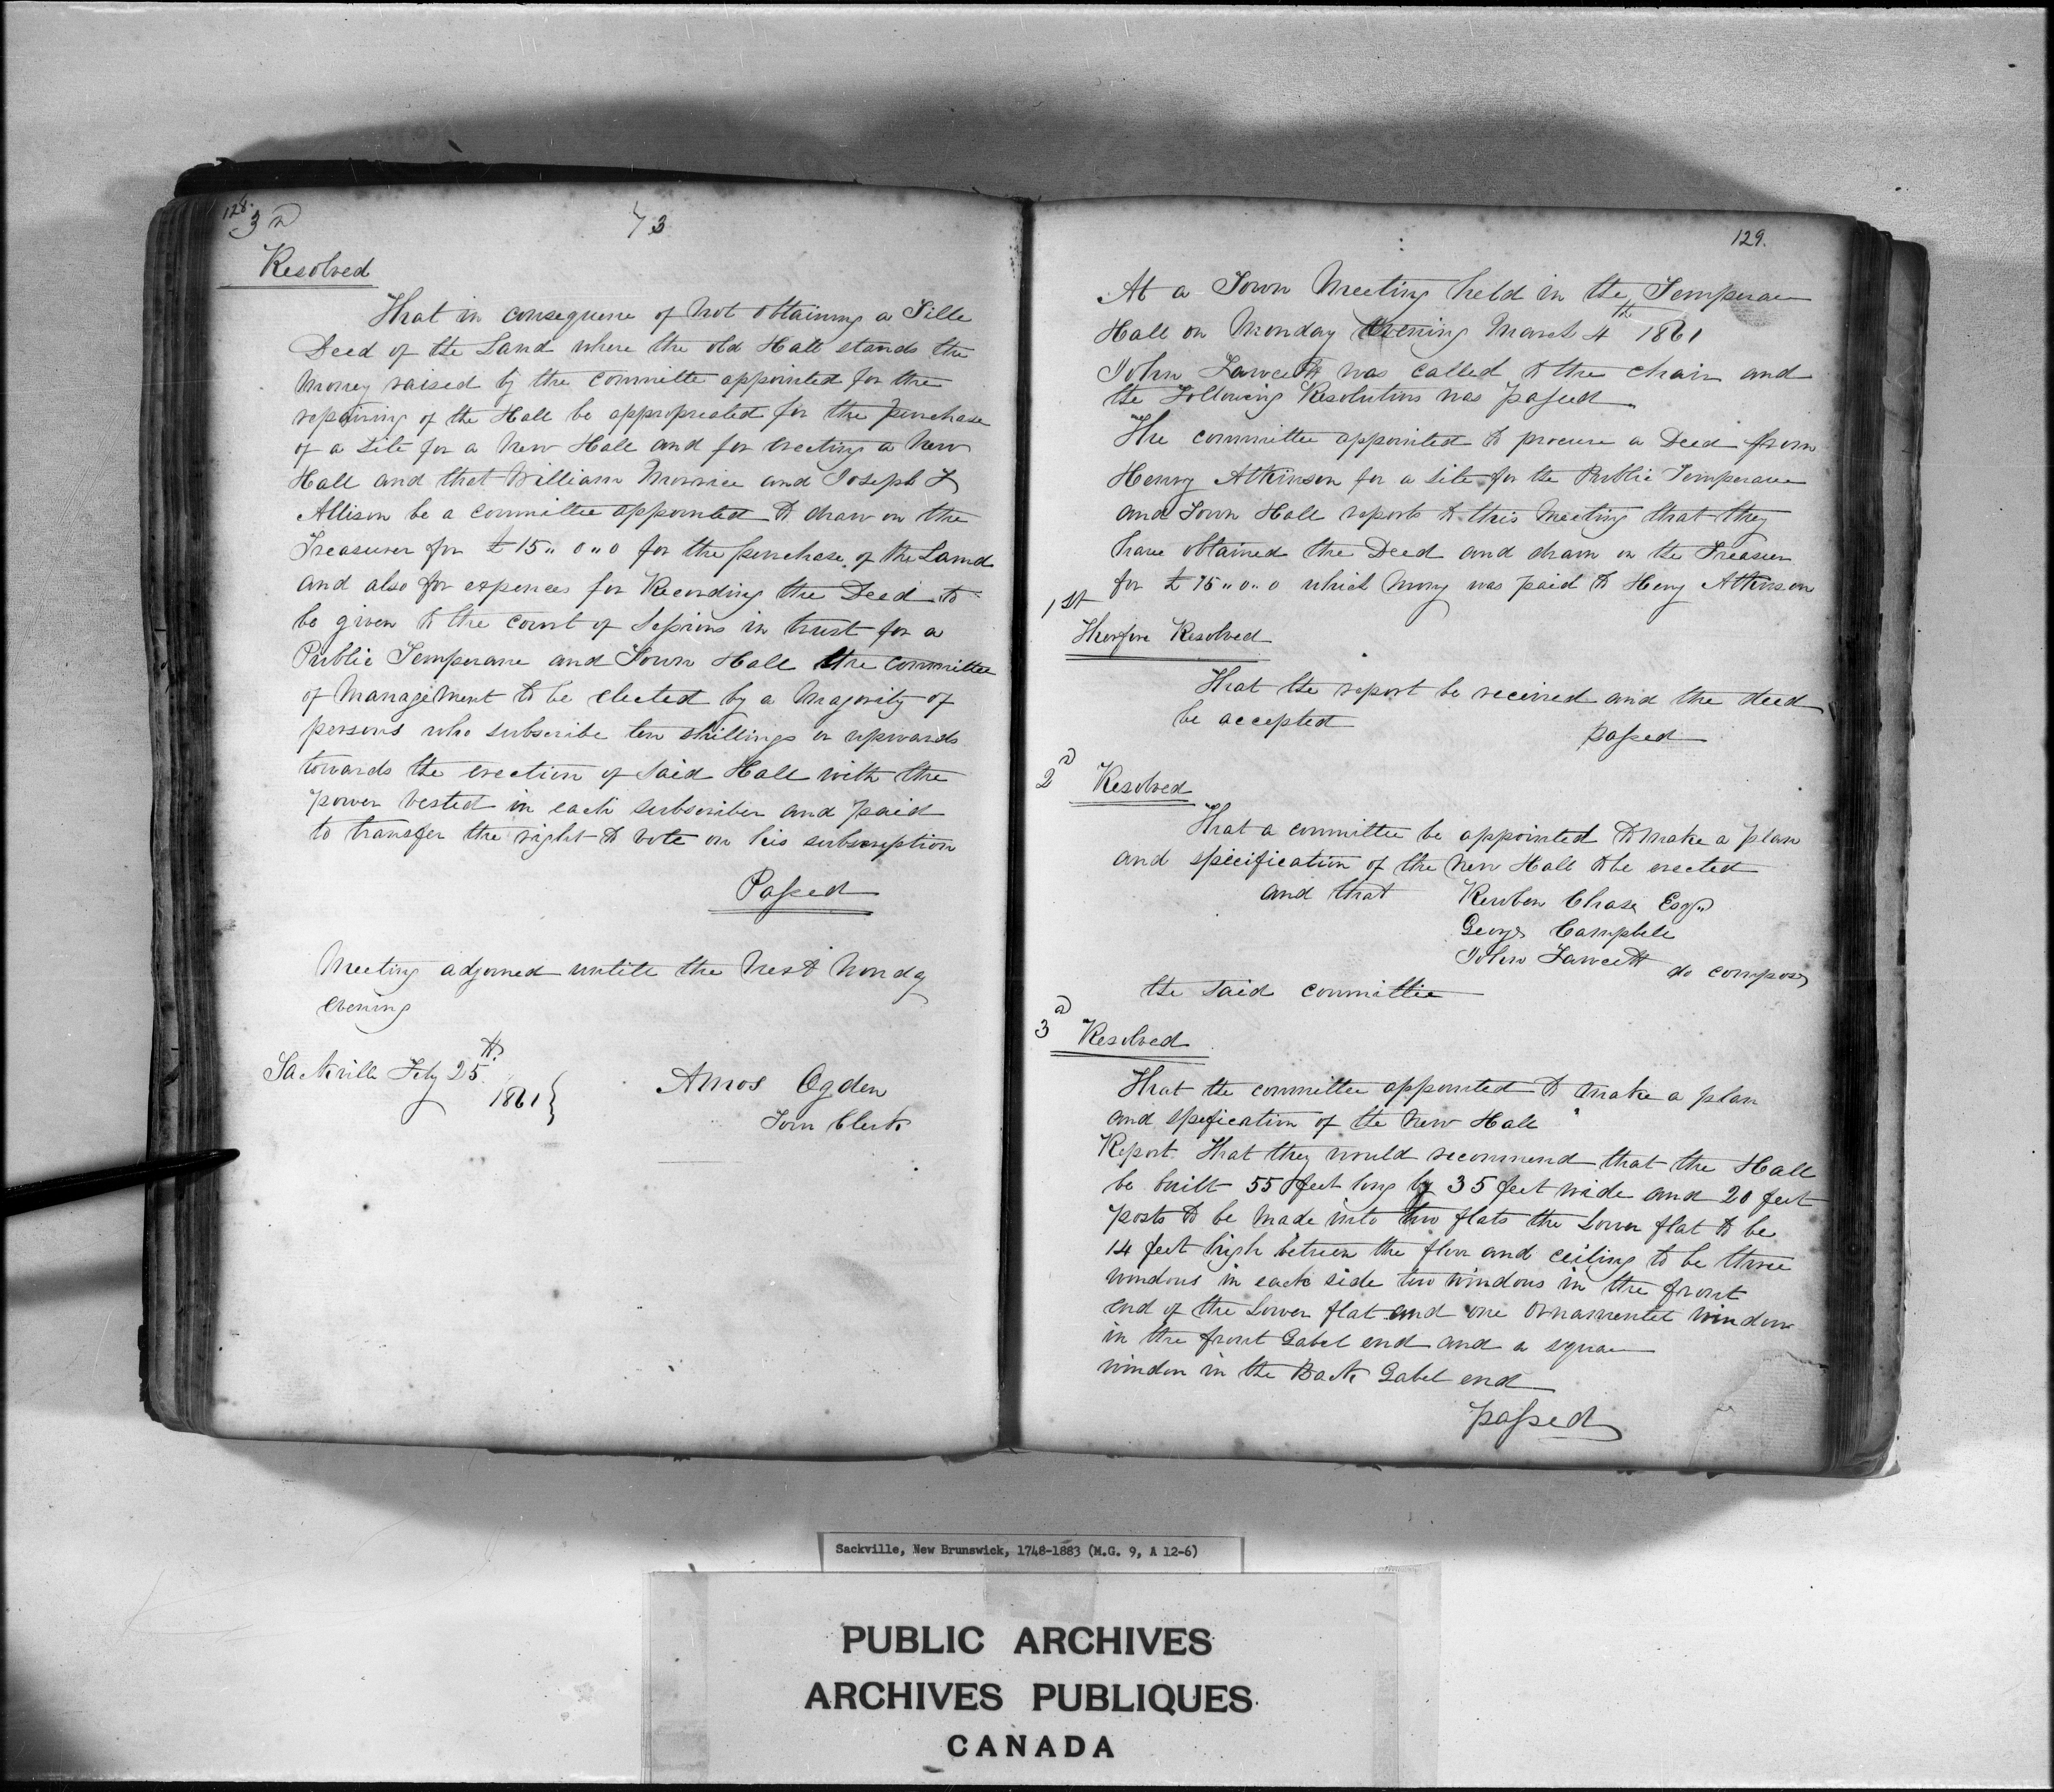 128.
3d
73
Resolved
That in consequence of Not Obtaining a Tille
Deed of the Land where the old Hall stands the
Money raised by the Committe appointed for the
repairing of the Hall be appropreated for the purchase
of a Site for a New Hall and for erecting a New
Hall and that William Morrice and Joseph L
Allison be a Committee appointed to draw on the
Treasurer for £15,, 0,, 0 for the purchase of the Land
and also for expences for Recording the Deed to
be given to the Court of Sessions in trust for a
Public Temperane and Town Hall the Committee
of Management to be elected by a Majority of
persons who subscribe ten shillings or upwards
towards the erection of Said Hall with the
power vested in each subscriber and paid
to transfer the right to vote on his subscription
Passed
Meeting adjorned untill the Next Monday
evening
Sackville Feby 25th
1861
Amos Ogden
Town Clerk
129.
At a Town Meeting held in the Temperane
Hall on Monday Evening March 4th 1861
John Fawcett was called to the chair and
the Following Resolutions was passed
The committee appointed to procure a Deed from
Henry Atkinson for a site for the Public Temperane
and Town Hall reports to this Meeting that they
have obtained the Deed and drawn on the Treasurer
for £15,, 0,, 0 which Mony was paid to Heny Atkinson
1st
Therfore Resolved
That the report be received and the deed
be accepted
passed
2d Resolved
That a committee be appointed to make a plan
and specification of the New Hall to be erected
and that Reuben Chase Esqr
George Campbell
John Fawcett do compose
the said committie
3d Resolved
That the committee appointed to make a plan
and spefication of the New Hall
Report That they would recommend that the Hall
be built 55 feet long by 35 feet wide and 20 feet
posts to be made into two flats the Lower flat to be
14 feet high between the floor and ceiling to be three
windows in each side two windows in the front
end of the Lower flat and one Ornamentel window
in the front Gabel end and a square
window in the Back Gabel end
passed
Sackville, New Brunswick, 1748-1883 (M.G. 9, A 12-6)
PUBLIC ARCHIVES
ARCHIVES PUBLIQUES
CANADA